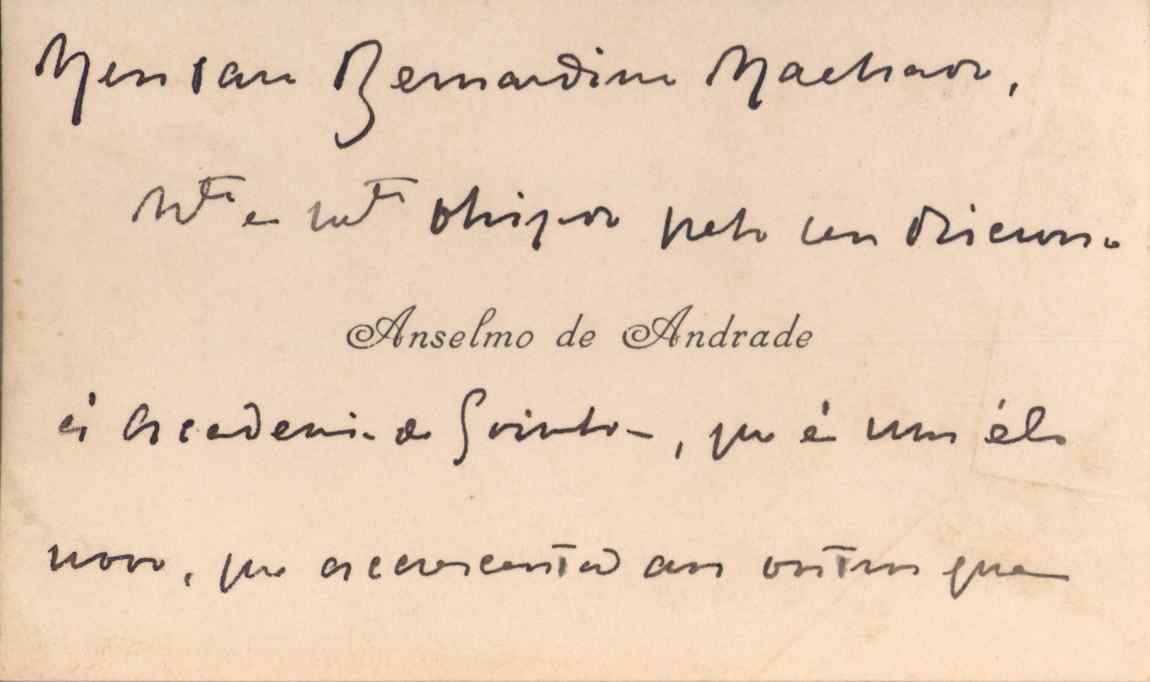 Meu caro Bernardino Machado,
Mto e mto obrigado pelo seu discurso
Anselmo de Andrade
á Academia de , que é um élo
novo, que accrescenta aos outros que